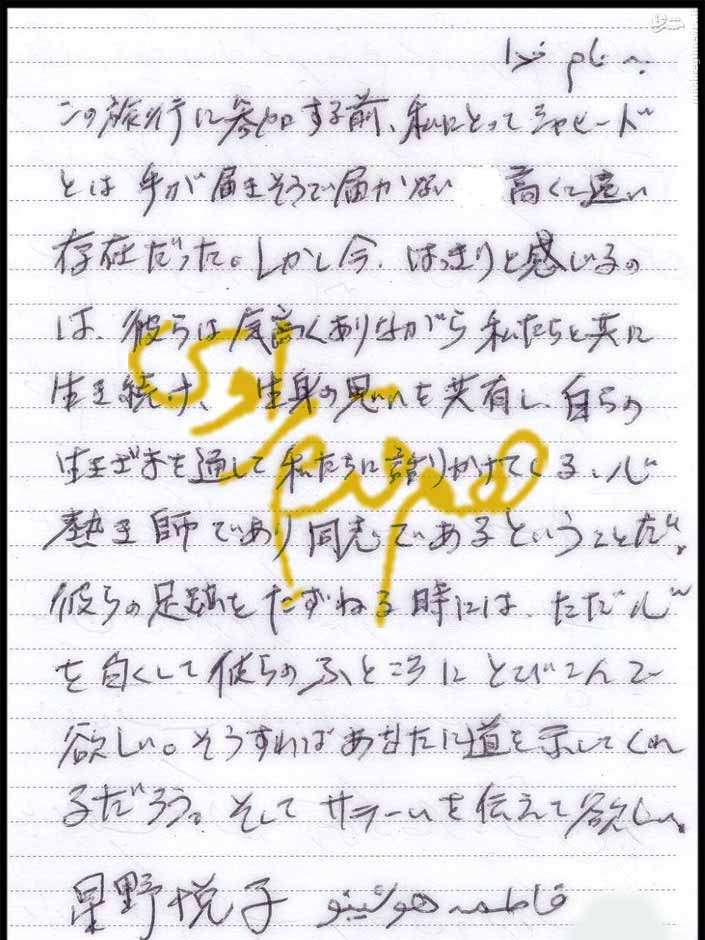 به نام خدا
この旅行に参加する前、私にとってシャヒード
とは手が届きそうで届かない 高くて遠い
存在だった。しかし今、はっきりと感じるの
は、彼らは気高くありながら私たちと共に
生き続け、生身の思いを共有し、自らの
生きざまを通して私たちに語りかけてくる、心
熱き師であり同志であるということだ。
彼らの足跡をたずねる時には、ただ心
を白くして彼らのふところにとびこんで
欲しい。そうすればあなたに道を示してくれ
るだろう。そしてサラームを伝えて欲しい。
星野悦子 فاطمه هوشینو